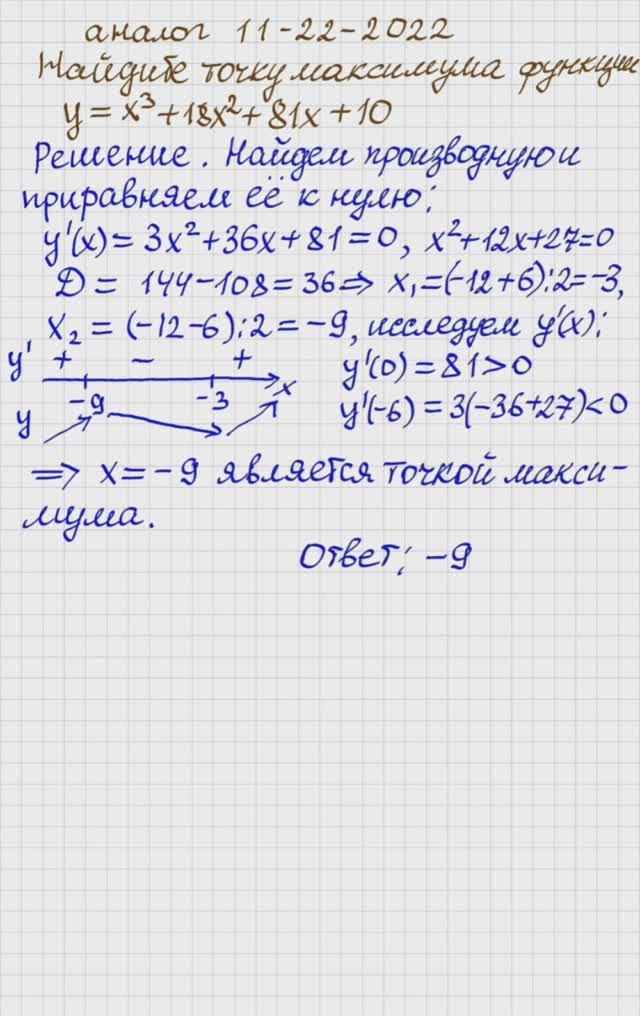 аналог 11-22-2022
Найдите точку максимума функции
y = x³ + 18x² + 81x + 10
Решение. Найдем производную и
приравняем её к нулю:
y'(x) = 3x² + 36x + 81 = 0, x² + 12x + 27 = 0
D = 144 - 108 = 36 ⇒ x₁ = (-12 + 6) : 2 = -3,
x₂ = (-12 - 6) : 2 = -9, исследуем y'(x):
y' + - + y'(0) = 81 > 0
-9 -3 x
y y'(-6) = 3(-36 + 27) < 0
⇒ x = -9 является точкой макси-
мума.
Ответ: -9